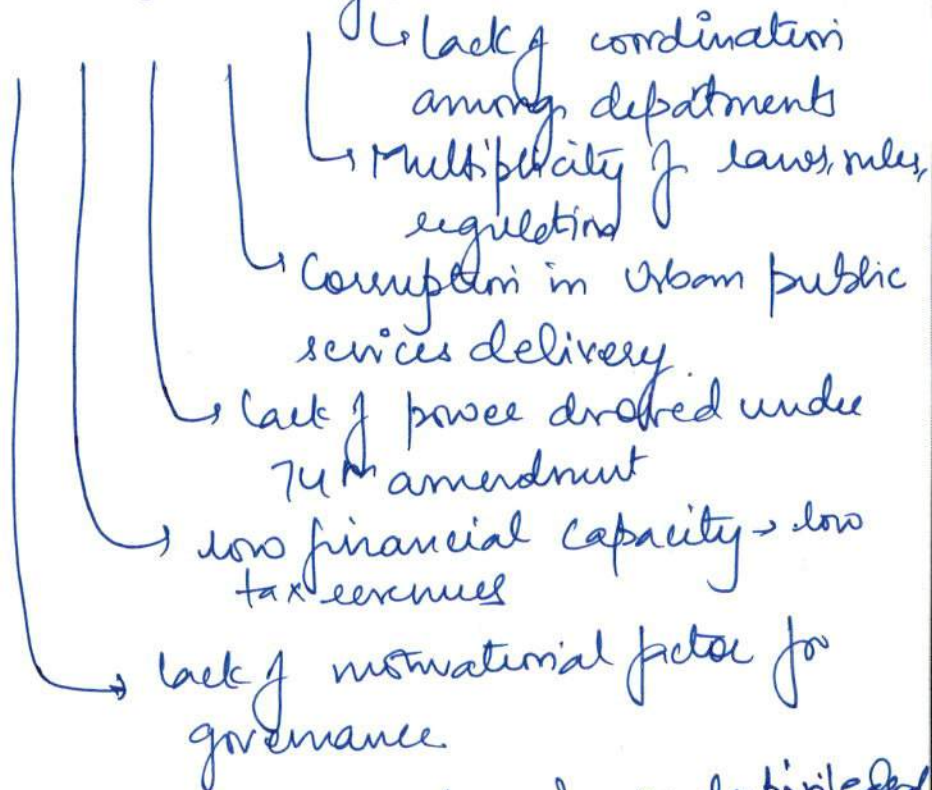 lack of coordination
among depatments
Multiplicity of laws, rules,
regulation
Corruption in Urban public
services delivery
lack of power devolved under
74th amendment
low financial capacity → low
tax revenues
lack of motivational factor for
governance